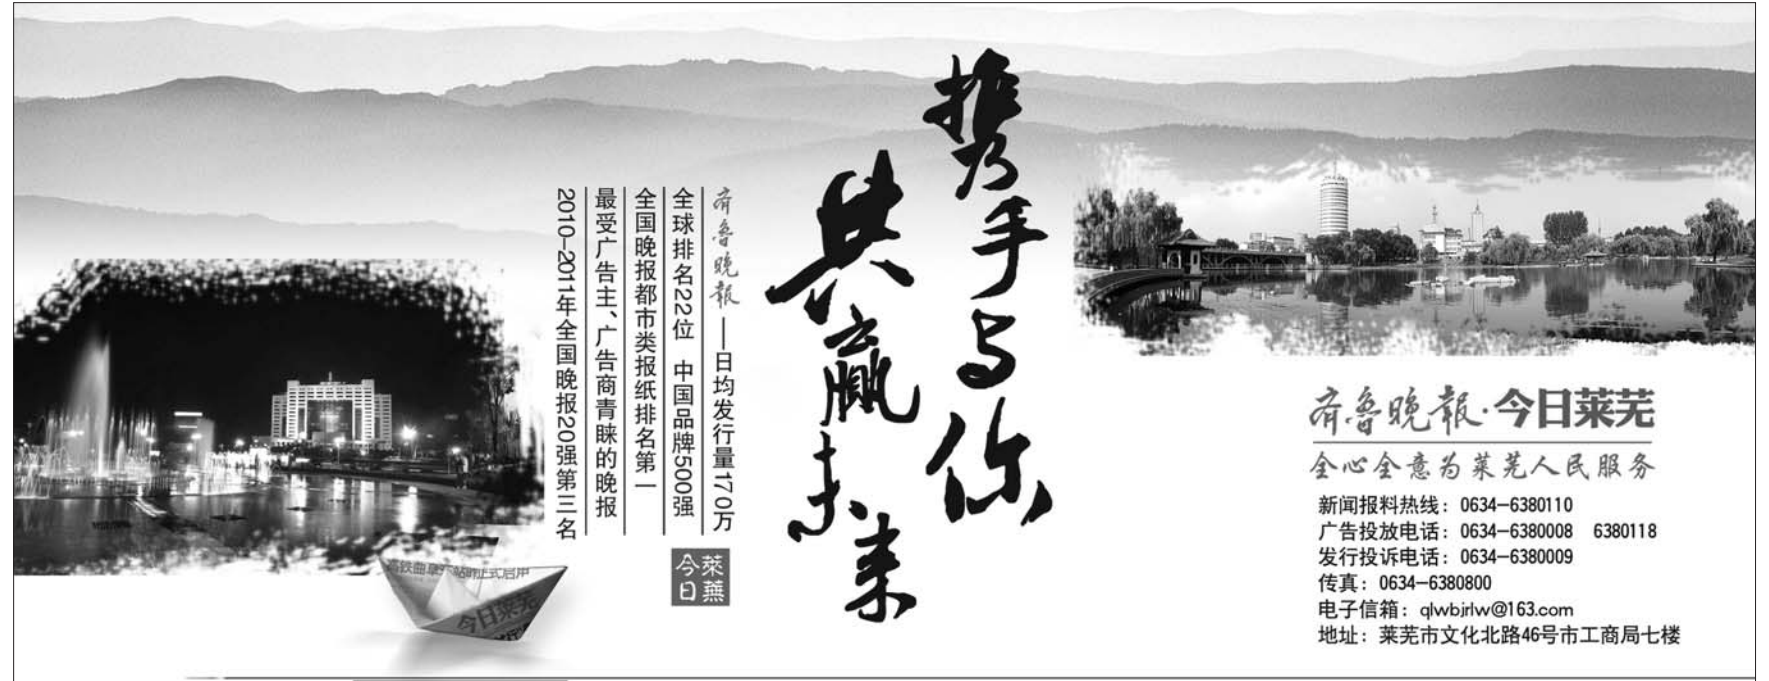 携手与你
共赢未来
齐鲁晚报——日均发行量170万
全球排名22位 中国品牌500强
全国晚报都市类报纸排名第一
最受广告主、广告商青睐的晚报
2010-2011年全国晚报20强第三名
今日萊蕪
今日莱芜
齐鲁晚报·今日莱芜
全心全意为莱芜人民服务
新闻报料热线：0634-6380110
广告投放电话：0634-6380008 6380118
发行投诉电话：0634-6380009
传真：0634-6380800
电子信箱：qlwbjrlw@163.com
地址：莱芜市文化北路46号市工商局七楼